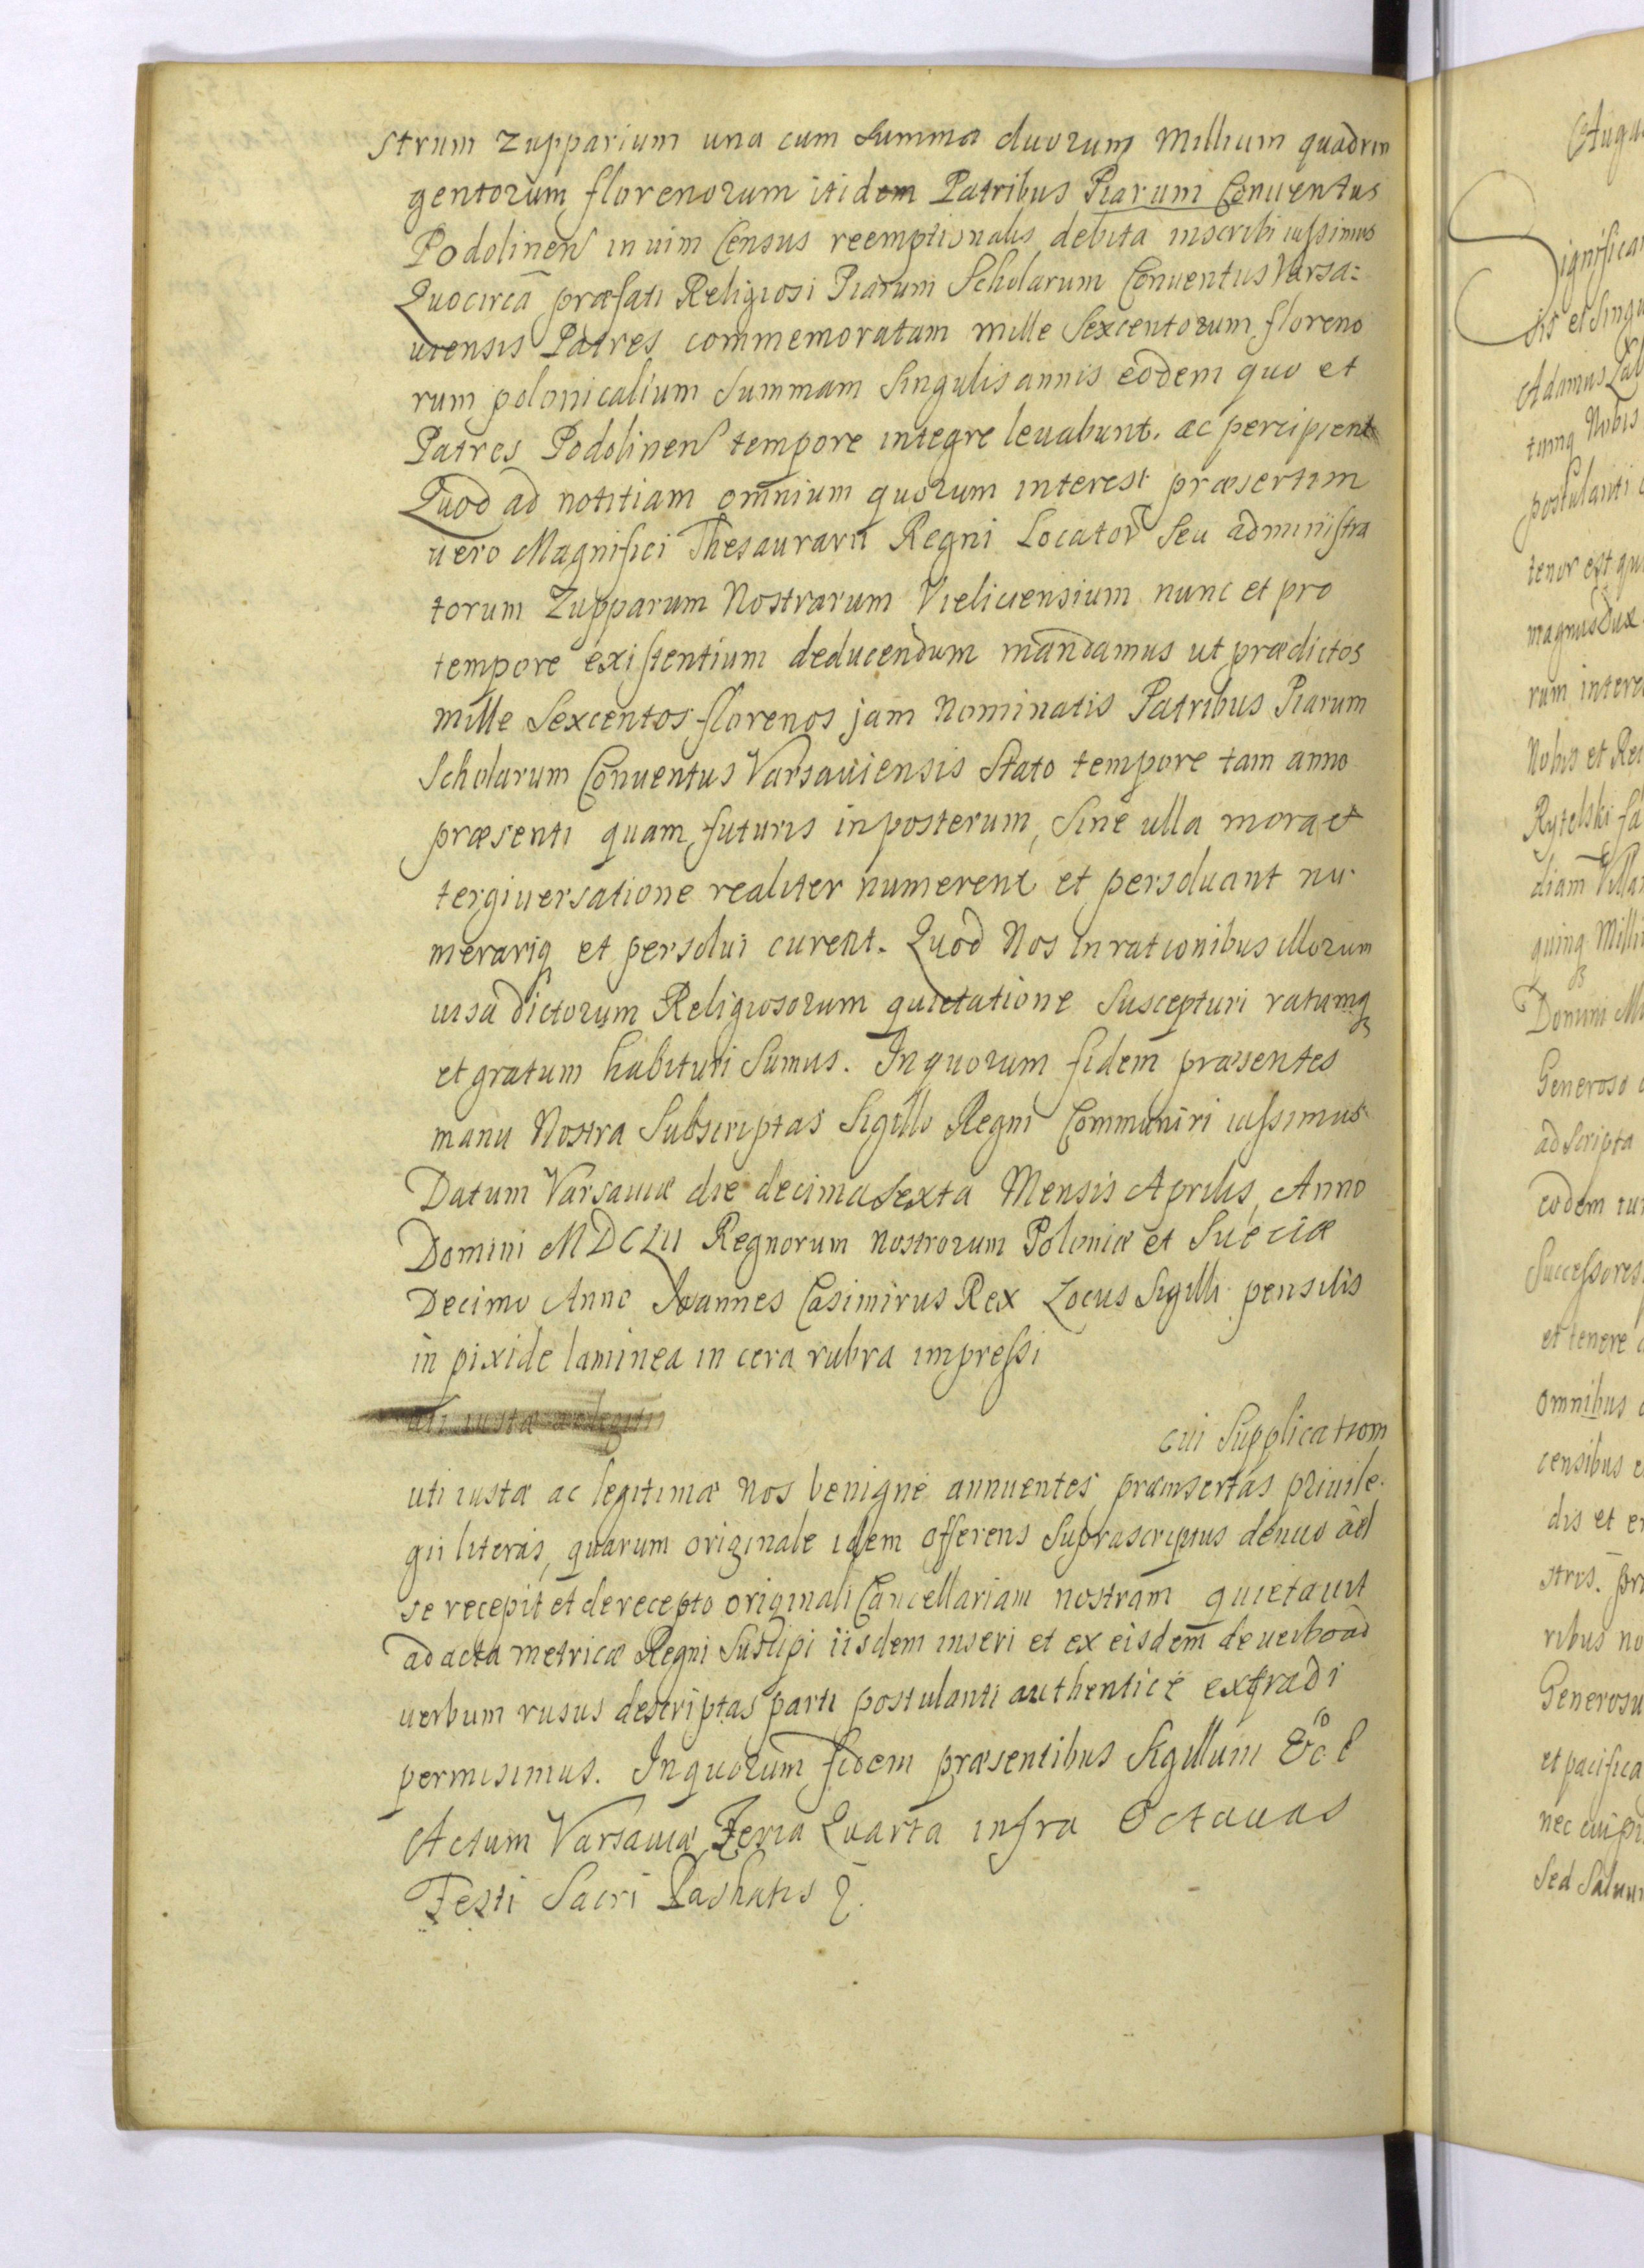 strum Zupparium una cum Summa duorum Millium quadrin
gentorum florenorum itidem Patribus Piarum Conuentus
Podolinen in uim Census reemptionalis debita inscribi iussimus
Quocirca præfati Religiosi Piarum Scholarum Conuentus Varsa=
uiensis Patres commemoratam mille Sexcentorum floreno
rum polonicalium Summam Singulis annis eodem quo et
Patres Podolinen tempore integre leuabunt. ac percipient
Quod ad notitiam omnium quorum interest præsertim
uero Magnifici Thesaurarii Regni Locator Seu administra
torum Zupparum Nostrarum Vieliciensium nunc et pro
tempore existentium deducendum mandamus ut prædictos
mille Sexcentos florenos jam Nominatis Patribus Piarum
Scholarum Conuentus Varsauiensis Stato tempore tam anno
præsenti quam futuris inposterum, Sine ulla mora et
tergiuersatione realiter numerent et persoluant nu-
merariq et persolui curent. Quod Nos in rationibus illorum
uisa dictorum Religiosorum quietatione Suscepturi ratumq
et gratum habituri Sumus. In quorum fidem præsentes
manu Nostra Subscriptas Sigillo Regni Communiri iussimus
Datum Varsauiæ die decima Sexta Mensis Aprilis, Anno
Domini MDCLII Regnorum nostrorum Poloniæ et Sueciæ
Decimo Anno Joannes Casimirus Rex Locus Sigilli pensilis
in pixide laminea in cera rubra impressi
uti iustæ ac legitis
cui Supplicationi
uti iustæ ac legitimæ Nos benigne annuentes præinsertas priuile-
gii literas, quarum originale idem offerens Suprascriptus denuo ad
se recepit et de recepto originali Cancellariam nostram quietauit
ad acta metricæ Regni Suscipi iisdem inseri et ex eisdem de uerbo ad
uerbum rusus descriptas parti postulanti authentice extradi
permisimus. In quorum fidem præsentibus Sigillum &c
Actum Varsauiæ Feria Quarta infra Octauas
Festi Sacri Paschatis
Augu
Significam
bis et Singu
Adamus
tumq Nobis
postulanti
tenor est qu
magnus Dux
rum intere
Nobis et Rei
Rytelski
diam Villa
quinq Milli
Domini M
Generoso
ad Scripta
eodem iu
Successores
et tenere
omnibus
censibus
dis et
stris. pr
ribus no
Generosu
et pacifica
nec cuipi
Sed Saluu